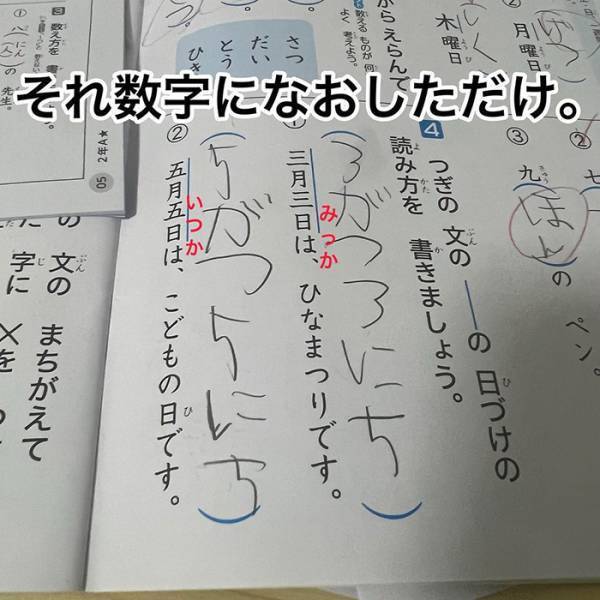 それ数字になおしただけ。
② 月曜日
木曜日
から えらんで
数える ものが 何
よく 考えよう。
さつ
だい
とう
ひき
③ 九(ほん)の ペン。
4 つぎの 文の ――の 日づけの
読み方を 書きましょう。
(3がつ3にち)
① 三月三日は、ひなまつりです。
みっか
(5がつ5にち)
② 五月五日は、こどもの日です。
いつか
3 数え方を 書
の 先生。
2年A★
05
文の まちがえて
字に ×を